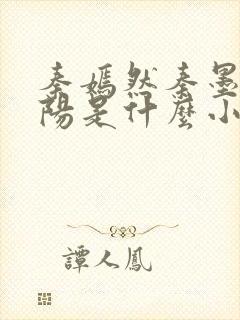 秦嫣然秦墨
陽是什麼小
譚人鳳